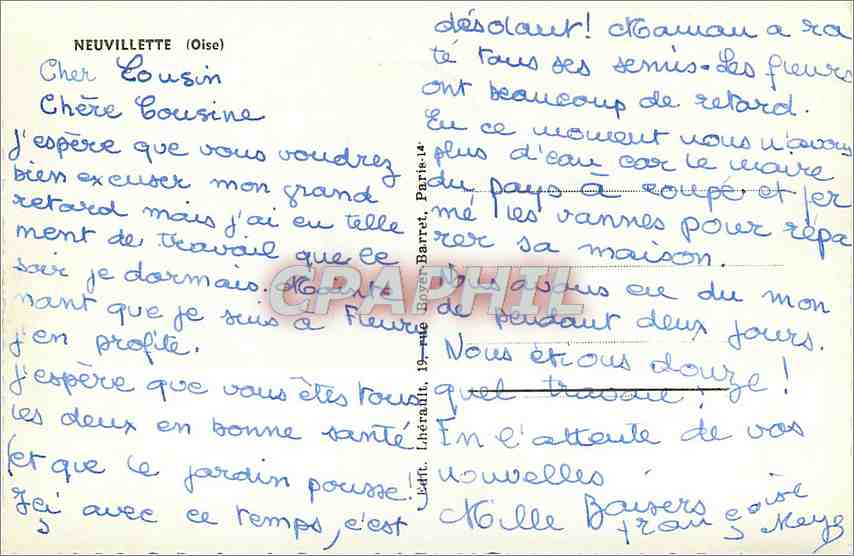 NEUVILLETTE (Oise)
Cher Cousin
Chère Cousine
J'espère que vous voudrez
bien excuser mon grand
retard mais j'ai eu telle
ment de travail que le
soir je dormais. Mainte
nant que je suis à Fleury
j'en profite.
J'espère que vous êtes tous
les deux en bonne santé
et que le jardin pousse!
Ici avec ce temps, c'est
Edit. Lhérault, 19, rue Boyer-Barret, Paris-14
désolant! Maman a ra
té tous ses semis. Les fleurs
ont beaucoup de retard.
En ce moment nous n'avons
plus d'eau car le maire
du pays à coupé et fer
mé les vannes pour répa
rer sa maison.
Nous avons eu du mon
de pendant deux jours.
Nous étions douze!
quel travail!
En l'attente de vos
nouvelles.
Mille Baisers
françoise
CPAPHIL